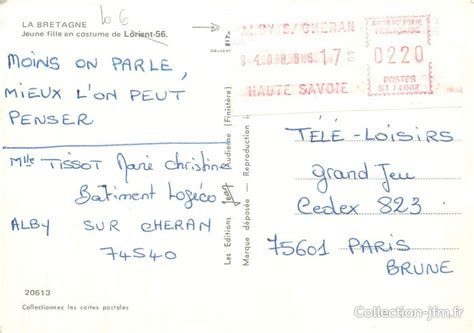 LA BRETAGNE
Jeune fille en costume de Lorient-56.
MOINS ON PARLE,
MIEUX L'ON PEUT
PENSER
Mlle TISSOT Marie Christine
Bâtiment Logéco
ALBY SUR CHERAN
74540
20613
Collectionnez les cartes postales
Les Editions Jean Audierne (Finistère)
Marque déposée - Reproduction
ALBY S/CHERAN
HAUTE SAVOIE
REPUBLIQUE
FRANÇAISE
0220
POSTES
TÉLÉ-LOISIRS
GRAND JEU
Cedex 823
75601 PARIS
BRUNE
Collection-jfm.fr